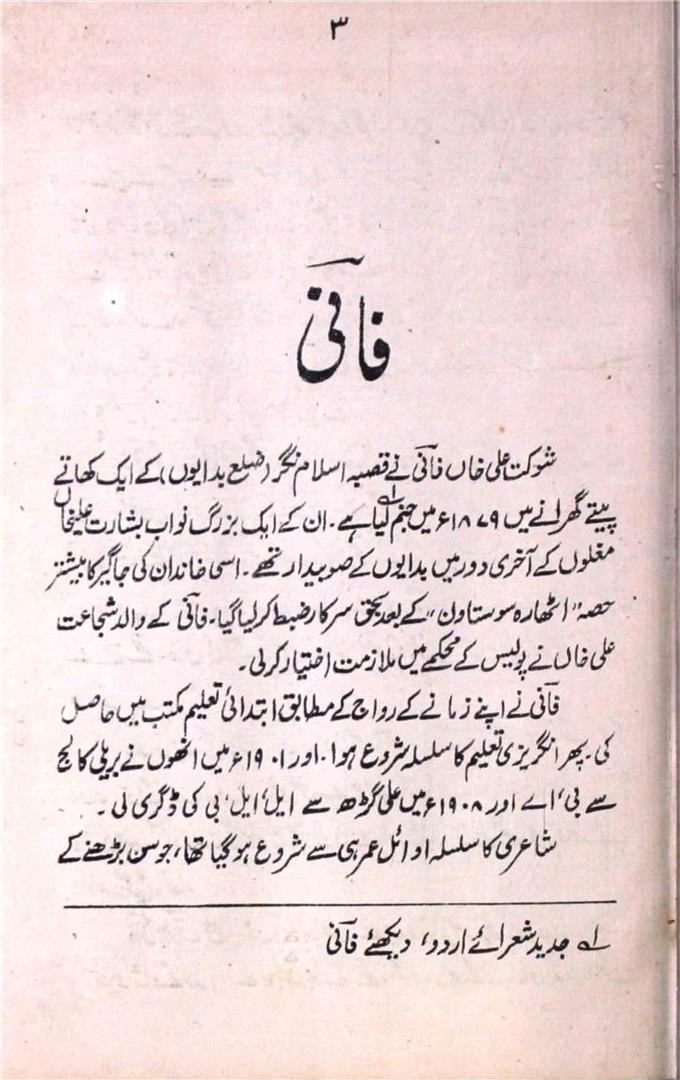 ۳
فانی
شوکت علی خاں فانی نے قصبہ اسلام نگر (ضلع بدایوں) کے ایک کھاتے
پیتے گھرانے میں ۱۸۷۹ء میں جنم لیا ہے۱۔ ان کے ایک بزرگ نواب بشارت علیخاں
مغلوں کے آخری دور میں بدایوں کے صوبیدار تھے۔ اسی خاندان کی جاگیر کا بیشتر
حصہ "اٹھارہ سو ستاون" کے بعد بحق سرکار ضبط کر لیا گیا۔ فانی کے والد شجاعت
علی خاں نے پولیس کے محکمے میں ملازمت اختیار کرلی۔
فانی نے اپنے زمانے کے رواج کے مطابق ابتدائی تعلیم مکتب میں حاصل
کی۔ پھر انگریزی تعلیم کا سلسلہ شروع ہوا۔ اور ۱۹۰۱ء میں انھوں نے بریلی کالج
سے بی، اے اور ۱۹۰۸ء میں علی گڑھ سے ایل، ایل، بی کی ڈگری لی۔
شاعری کا سلسلہ اوائل عمر ہی سے شروع ہو گیا تھا، جو سن بڑھنے کے
۱؎ جدید شعرائے اردو، دیکھئے فانی